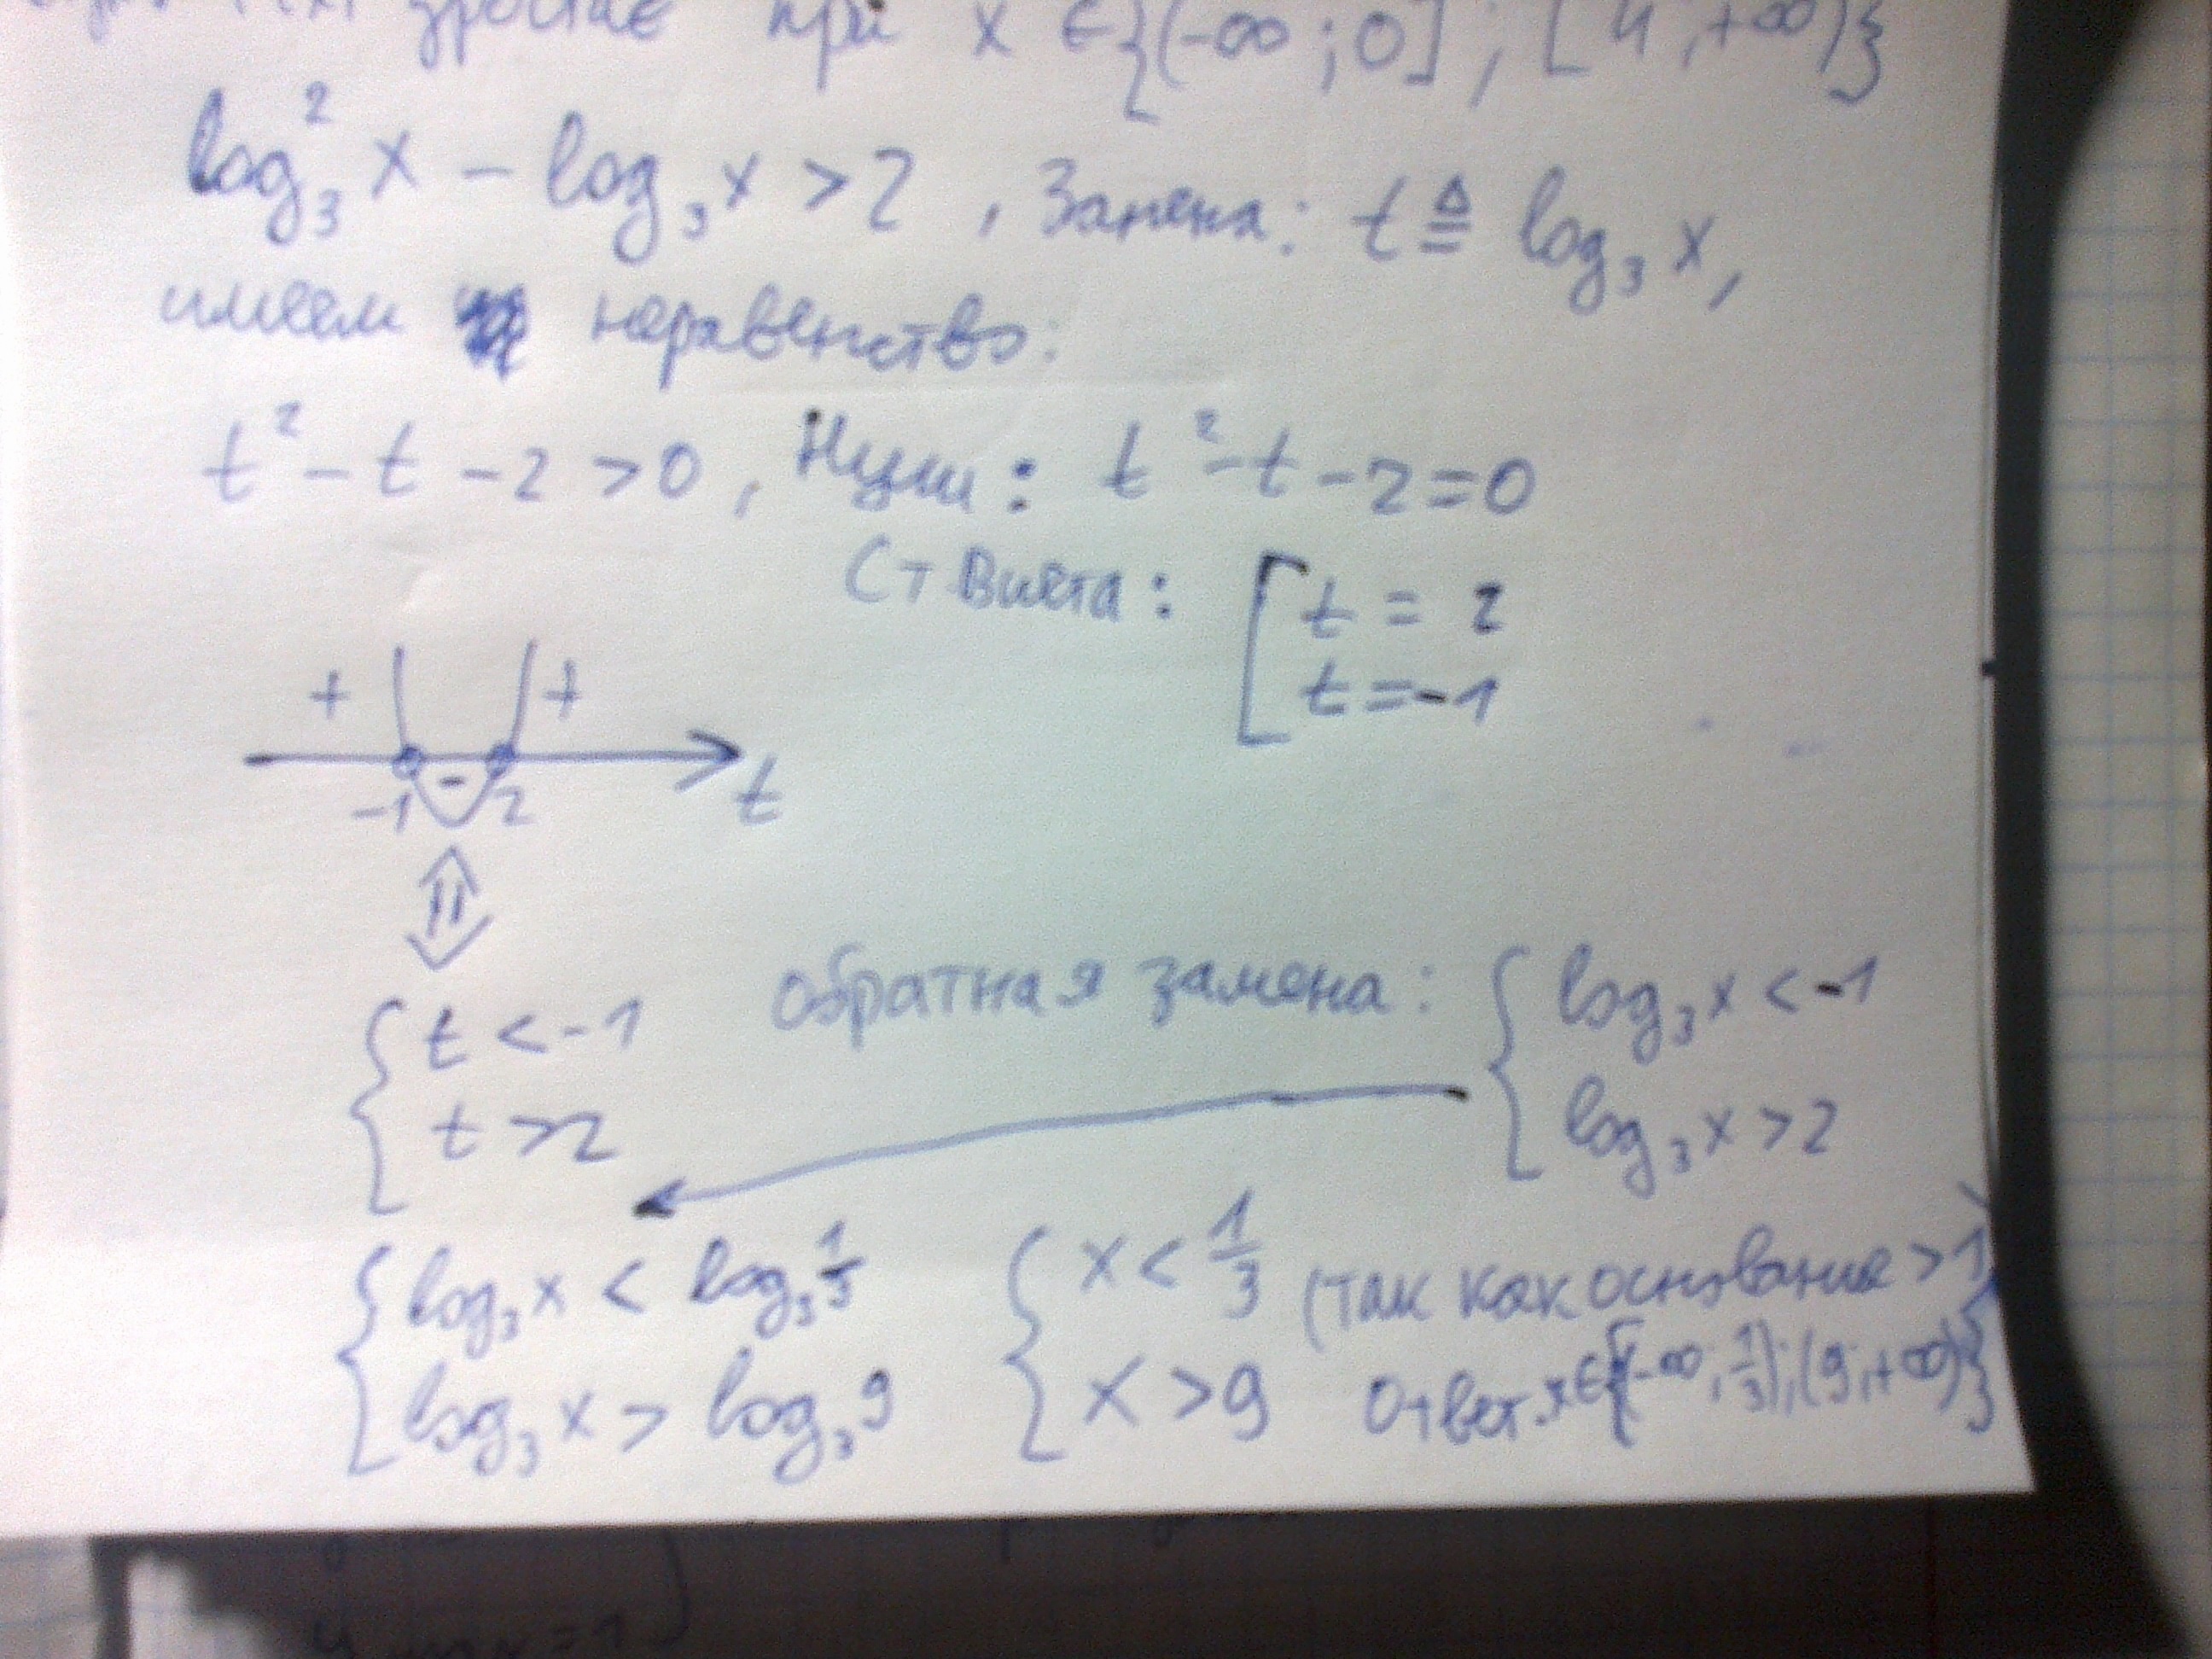 зростає при x ∈ {(-∞; 0]; [4; +∞)}
log₃² x - log₃ x > 2, Замена: t ≜ log₃ x,
имеем неравенство:
t² - t - 2 > 0, Нули: t² - t - 2 = 0
Ст Виета: [ t = 2
t = -1
+ +
-
-1 2 t
⇕
{ t < -1 обратная замена: { log₃ x < -1
t > 2 log₃ x > 2
{ log₃ x < log₃ 1/3 { x < 1/3 (так как основание > 1)
log₃ x > log₃ 9 x > 9 Ответ: x ∈ {(-∞; 1/3); (9; +∞)}